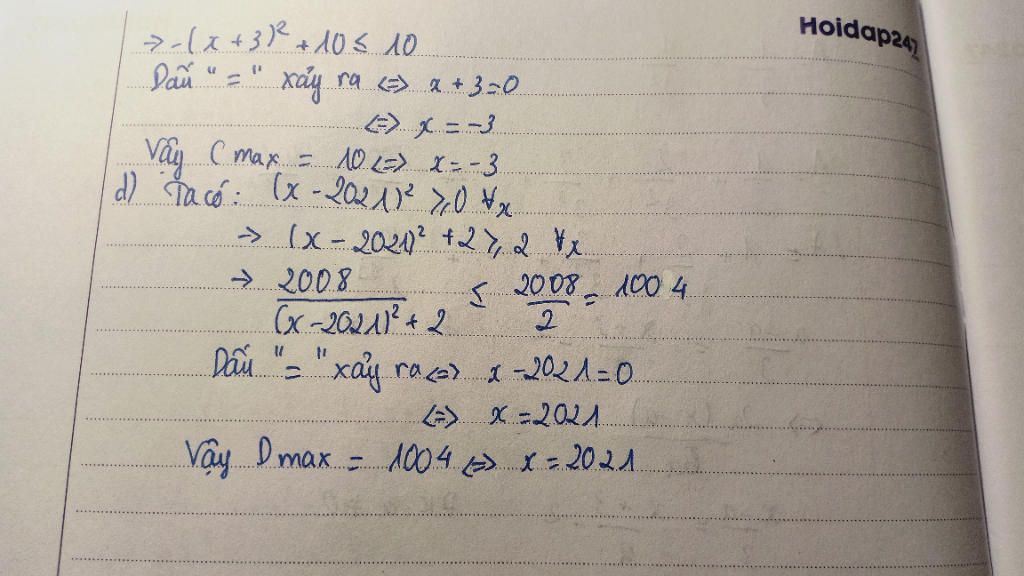 Hoidap247
→ -(x + 3)² + 10 ≤ 10
Dấu "=" xảy ra <=> x + 3 = 0
<=> x = -3
Vậy C max = 10 <=> x = -3
d) Ta có: (x - 2021)² ≥ 0 ∀x
→ (x - 2021)² + 2 ≥ 2 ∀x
→ 2008 / ((x - 2021)² + 2) ≤ 2008 / 2 = 1004
Dấu "=" xảy ra <=> x - 2021 = 0
<=> x = 2021
Vậy D max = 1004 <=> x = 2021